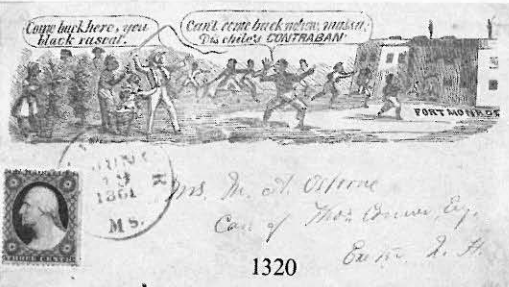 Come back here, you
black rascal.
Can't come back nohow, massa;
Dis chile's CONTRABAN'
FORT MONROE
JUN
1861
MS.
THREE CENTS
Mrs. M. A. Osborne
Care of Thos Conner, Esq.
Exeter N. H.
1320